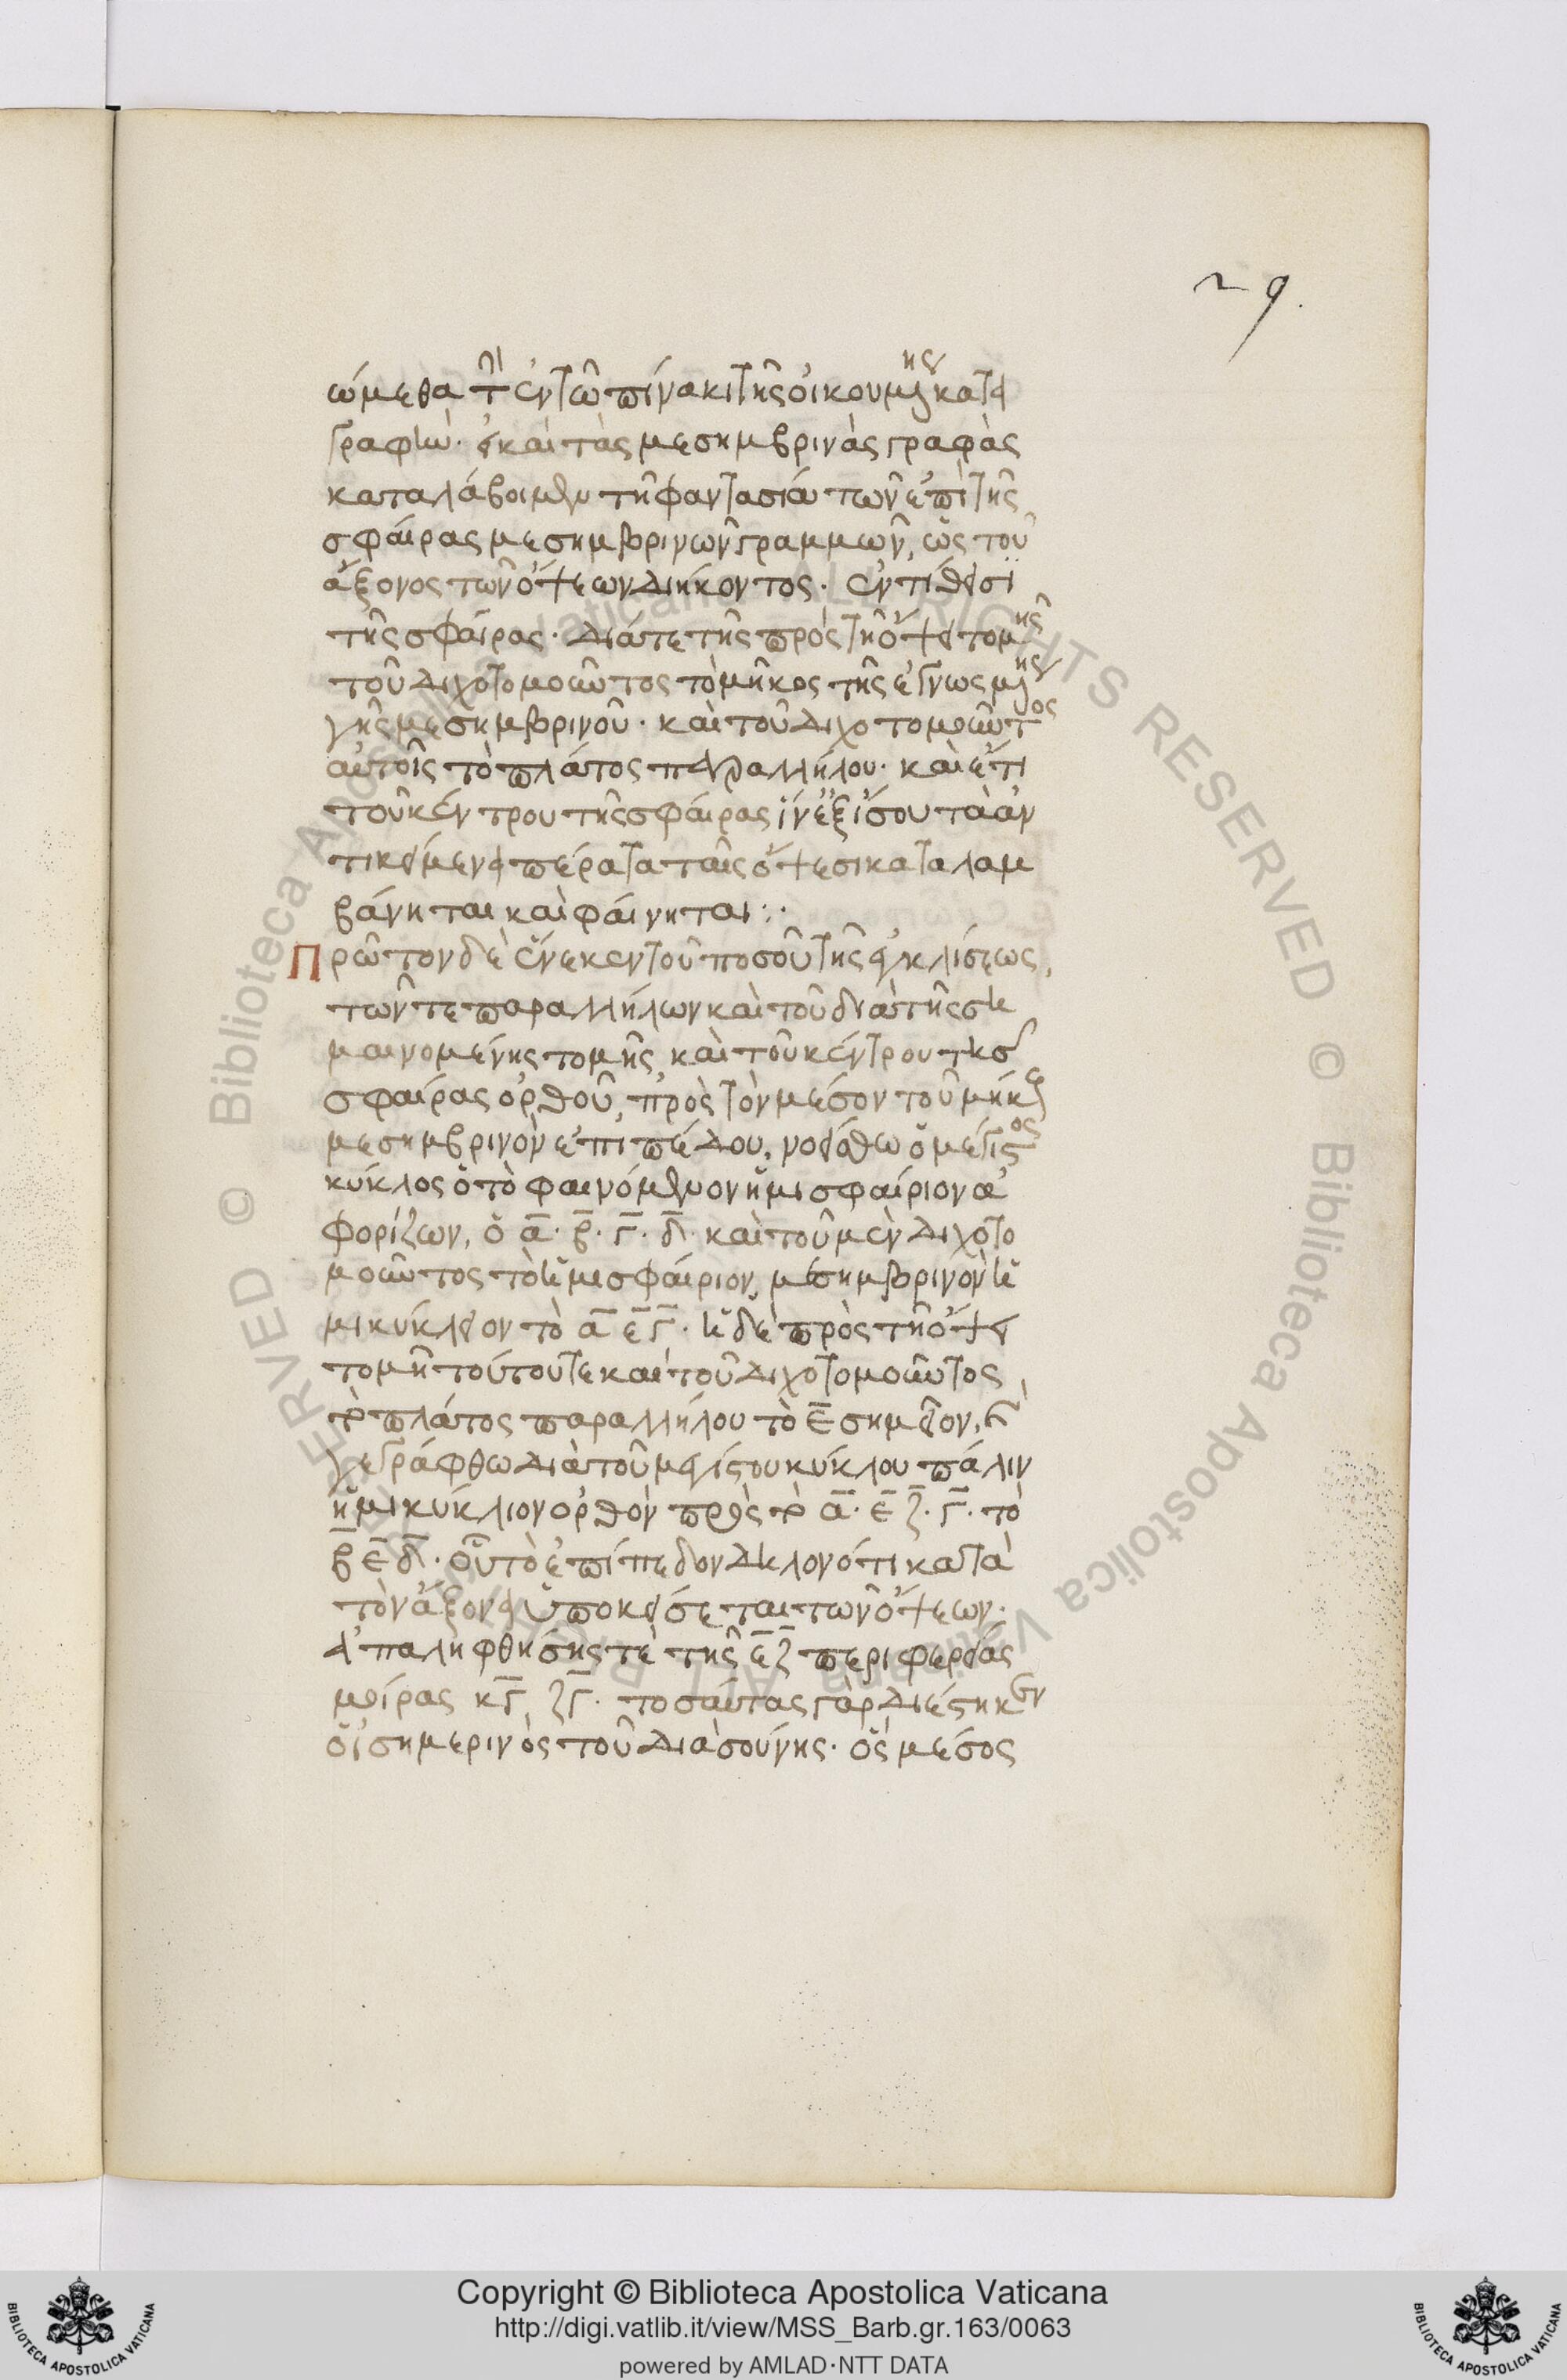 29.
ώμεθα τὴν ἐν τῶ πίνακι τῆς οἰκουμένης κατα
γραφὴν. εἰ καὶ τὰς μεσημβρινὰς γραφὰς
καταλάβοιμεν τῆ φαντασία τῶν ἐπὶ τῆς
σφαίρας μεσημβρινῶν γραμμῶν, ὡς τοῦ
ἄξονος τῶν ὄψεων διήκοντος. ἐν τῆ θέσει
τῆς σφαίρας. διά τε τῆς πρὸς τῆ ὄψει τομῆς
τοῦ διχοτομοῦντος τὸ μῆκος τῆς ἐγνωσμένης
γῆς μεσημβρινοῦ. καὶ τοῦ διχοτομοῦντος
αὐτοῖς τὸ πλάτος παραλλήλου. καὶ ἔτι
τοῦ κέντρου τῆς σφαίρας ἵν' ἐξίσου τὰ ἀν
τικείμενα πέρατα ταῖς ὄψεσι καταλαμ
βάνηται καὶ φαίνηται:·
Πρῶτον δὲ ἕνεκεν τοῦ ποσοῦ τῆς ἐκκλίσεως,
τῶν τε παραλλήλων καὶ τοῦ διὰ τῆς ση
μαινομένης τομῆς, καὶ τοῦ κέντρου τῆς
σφαίρας ὀρθοῦ, πρὸς τὸν μέσον τοῦ μήκους
μεσημβρινὸν ἐπιπέδου, νοείσθω ὁ μέγιστος
κύκλος ὁ τὸ φαινόμενον ἡμισφαίριον ἀ
φορίζων, ὁ α. β. γ. δ. καὶ τοῦ μὲν διχοτο
μοῦντος τὸ ἡμισφαίριον, μεσημβρινὸν ἡ
μικύκλειον τὸ α ε γ. ἡ δὲ πρὸς τῆ ὄψει
τομὴ τούτου τε καὶ τοῦ διχοτομοῦντος
τὸ πλάτος παραλλήλου τὸ ε σημεῖον, καὶ
γεγράφθω διὰ τοῦ μεγίστου κύκλου πάλιν
ἡμικύκλιον ὀρθὸν πρὸς τὸ α. ε ζ. γ. τὸ
β ε δ. οὗ τὸ ἐπίπεδον δηλονότι κατὰ
τὸν ἄξονα ὑποκείσεται τῶν ὄψεων.
ἀπαληφθησης τὲ τῆς ε ζ περιφερείας
μοίρας κγ ζγ. τοσαύτας γὰρ διέστηκεν
ὁ ἰσημερινὸς τοῦ διὰ σουήνης. ὃς μέσος
Copyright © Biblioteca Apostolica Vaticana
http://digi.vatlib.it/view/MSS_Barb.gr.163/0063
powered by AMLAD·NTT DATA